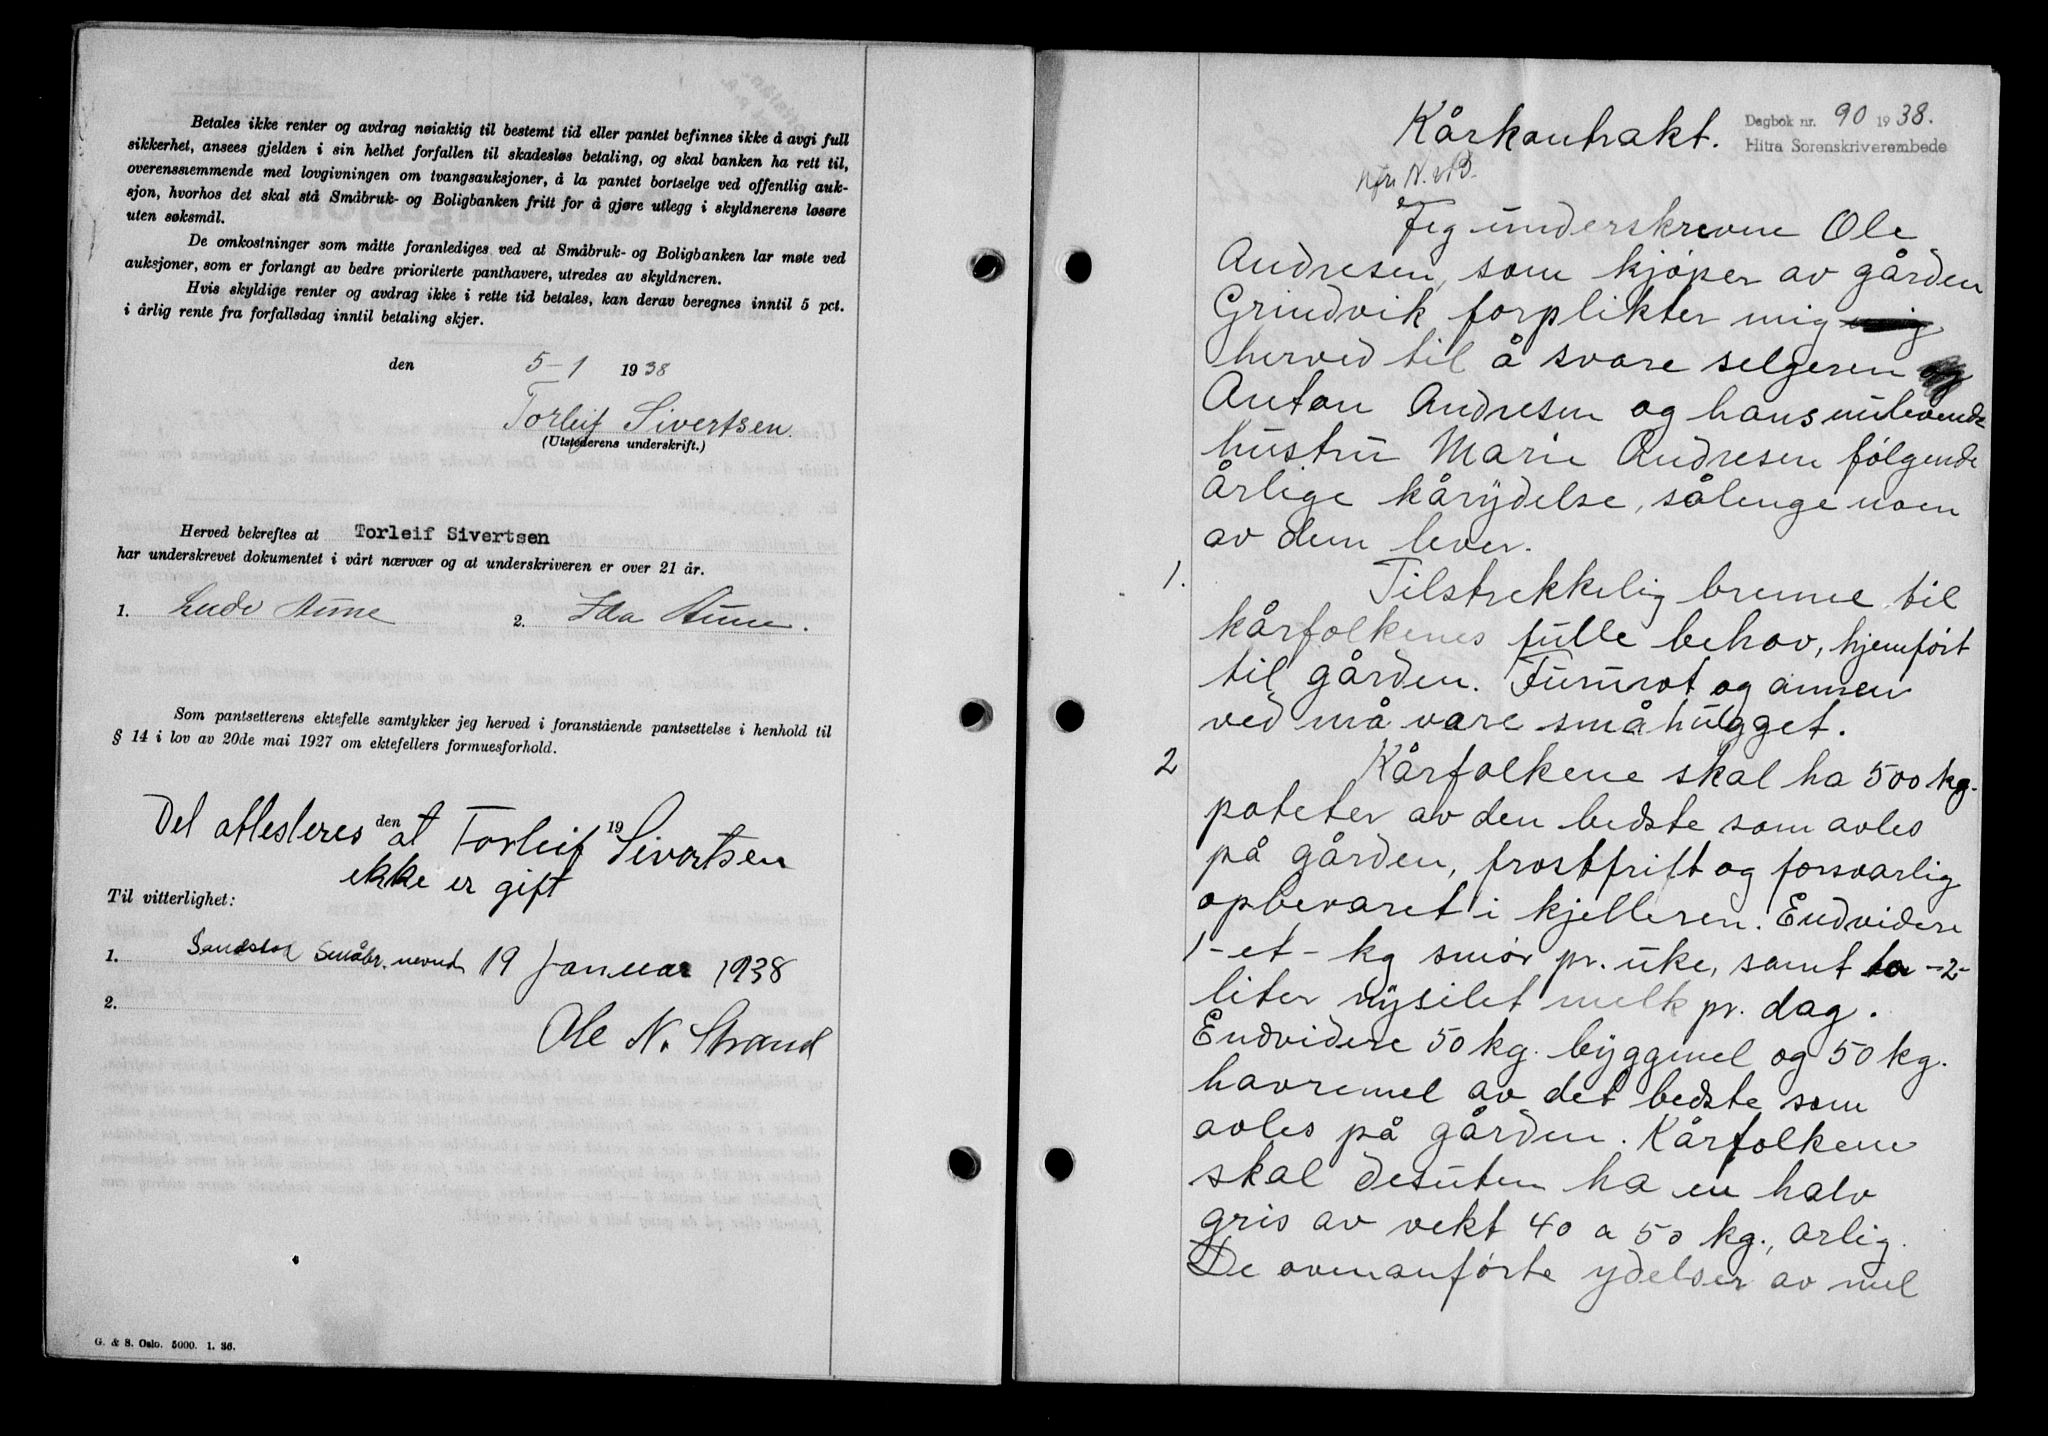 Betales ikke renter og avdrag nøiaktig til bestemt tid eller pantet befinnes ikke å avgi full
sikkerhet, ansees gjelden i sin helhet forfallen til skadesløs betaling, og skal banken ha rett til,
overensstemmende med lovgivningen om tvangsauksjoner, å la pantet bortselge ved offentlig auk-
sjon, hvorhos det skal stå Småbruk- og Boligbanken fritt for å gjøre utlegg i skyldnerens løsøre
uten søksmål.
De omkostninger som måtte foranlediges ved at Småbruk- og Boligbanken lar møte ved
auksjoner, som er forlangt av bedre prioriterte panthavere, utredes av skyldneren.
Hvis skyldige renter og avdrag ikke i rette tid betales, kan derav beregnes inntil 5 pct.
i årlig rente fra forfallsdag inntil betaling skjer.
den 5-1 1938
Torleif Sivertsen.
(Utstederens underskrift.)
Herved bekreftes at Torleif Sivertsen
har underskrevet dokumentet i vårt nærvær og at underskriveren er over 21 år.
1. Aune 2. Ida Aune.
Som pantsetterens ektefelle samtykker jeg herved i foranstående pantsettelse i henhold til
§ 14 i lov av 20de mai 1927 om ektefellers formuesforhold.
den 19
Det attesteres at Torleif Sivertsen
ikke er gift
Til vitterlighet:
1. Sandstad Småbr. nevnd 19 Januar 1938
2.
Ole N. Strand
G. & S. Oslo. 5000. 1. 36.
Kårkontrakt.
Dagbok nr. 90 1938.
Hitra Sorenskriverembede
N.B.
Jeg underskrevne Ole
Andresen, som kjøper av gården
Grindvik forplikter mig
herved til å svare selgeren
Anton Andresen og hans nulevende
hustru Marie Andresen følgende
årlige kårydelse, sålenge noen
av dem lever.
1. Tilstrekkelig brenne til
kårfolkenes fulle behov, hjemført
til gården. Fururot og annen
ved må være småhugget.
2 Kårfolkene skal ha 500 kg.
poteter av den bedste som avles
på gården, frostfritt og forsvarlig
opbevaret i kjelleren. Endvidere
1-et- kg smør pr. uke, samt to -2-
liter nysilet melk pr. dag.
Endvidere 50 kg. byggmel og 50 kg.
havremel av det bedste som
avles på gården. Kårfolkene
skal desuten ha en halv
gris av vekt 40 a 50 kg., årlig.
De ovenanførte ydelser av mel